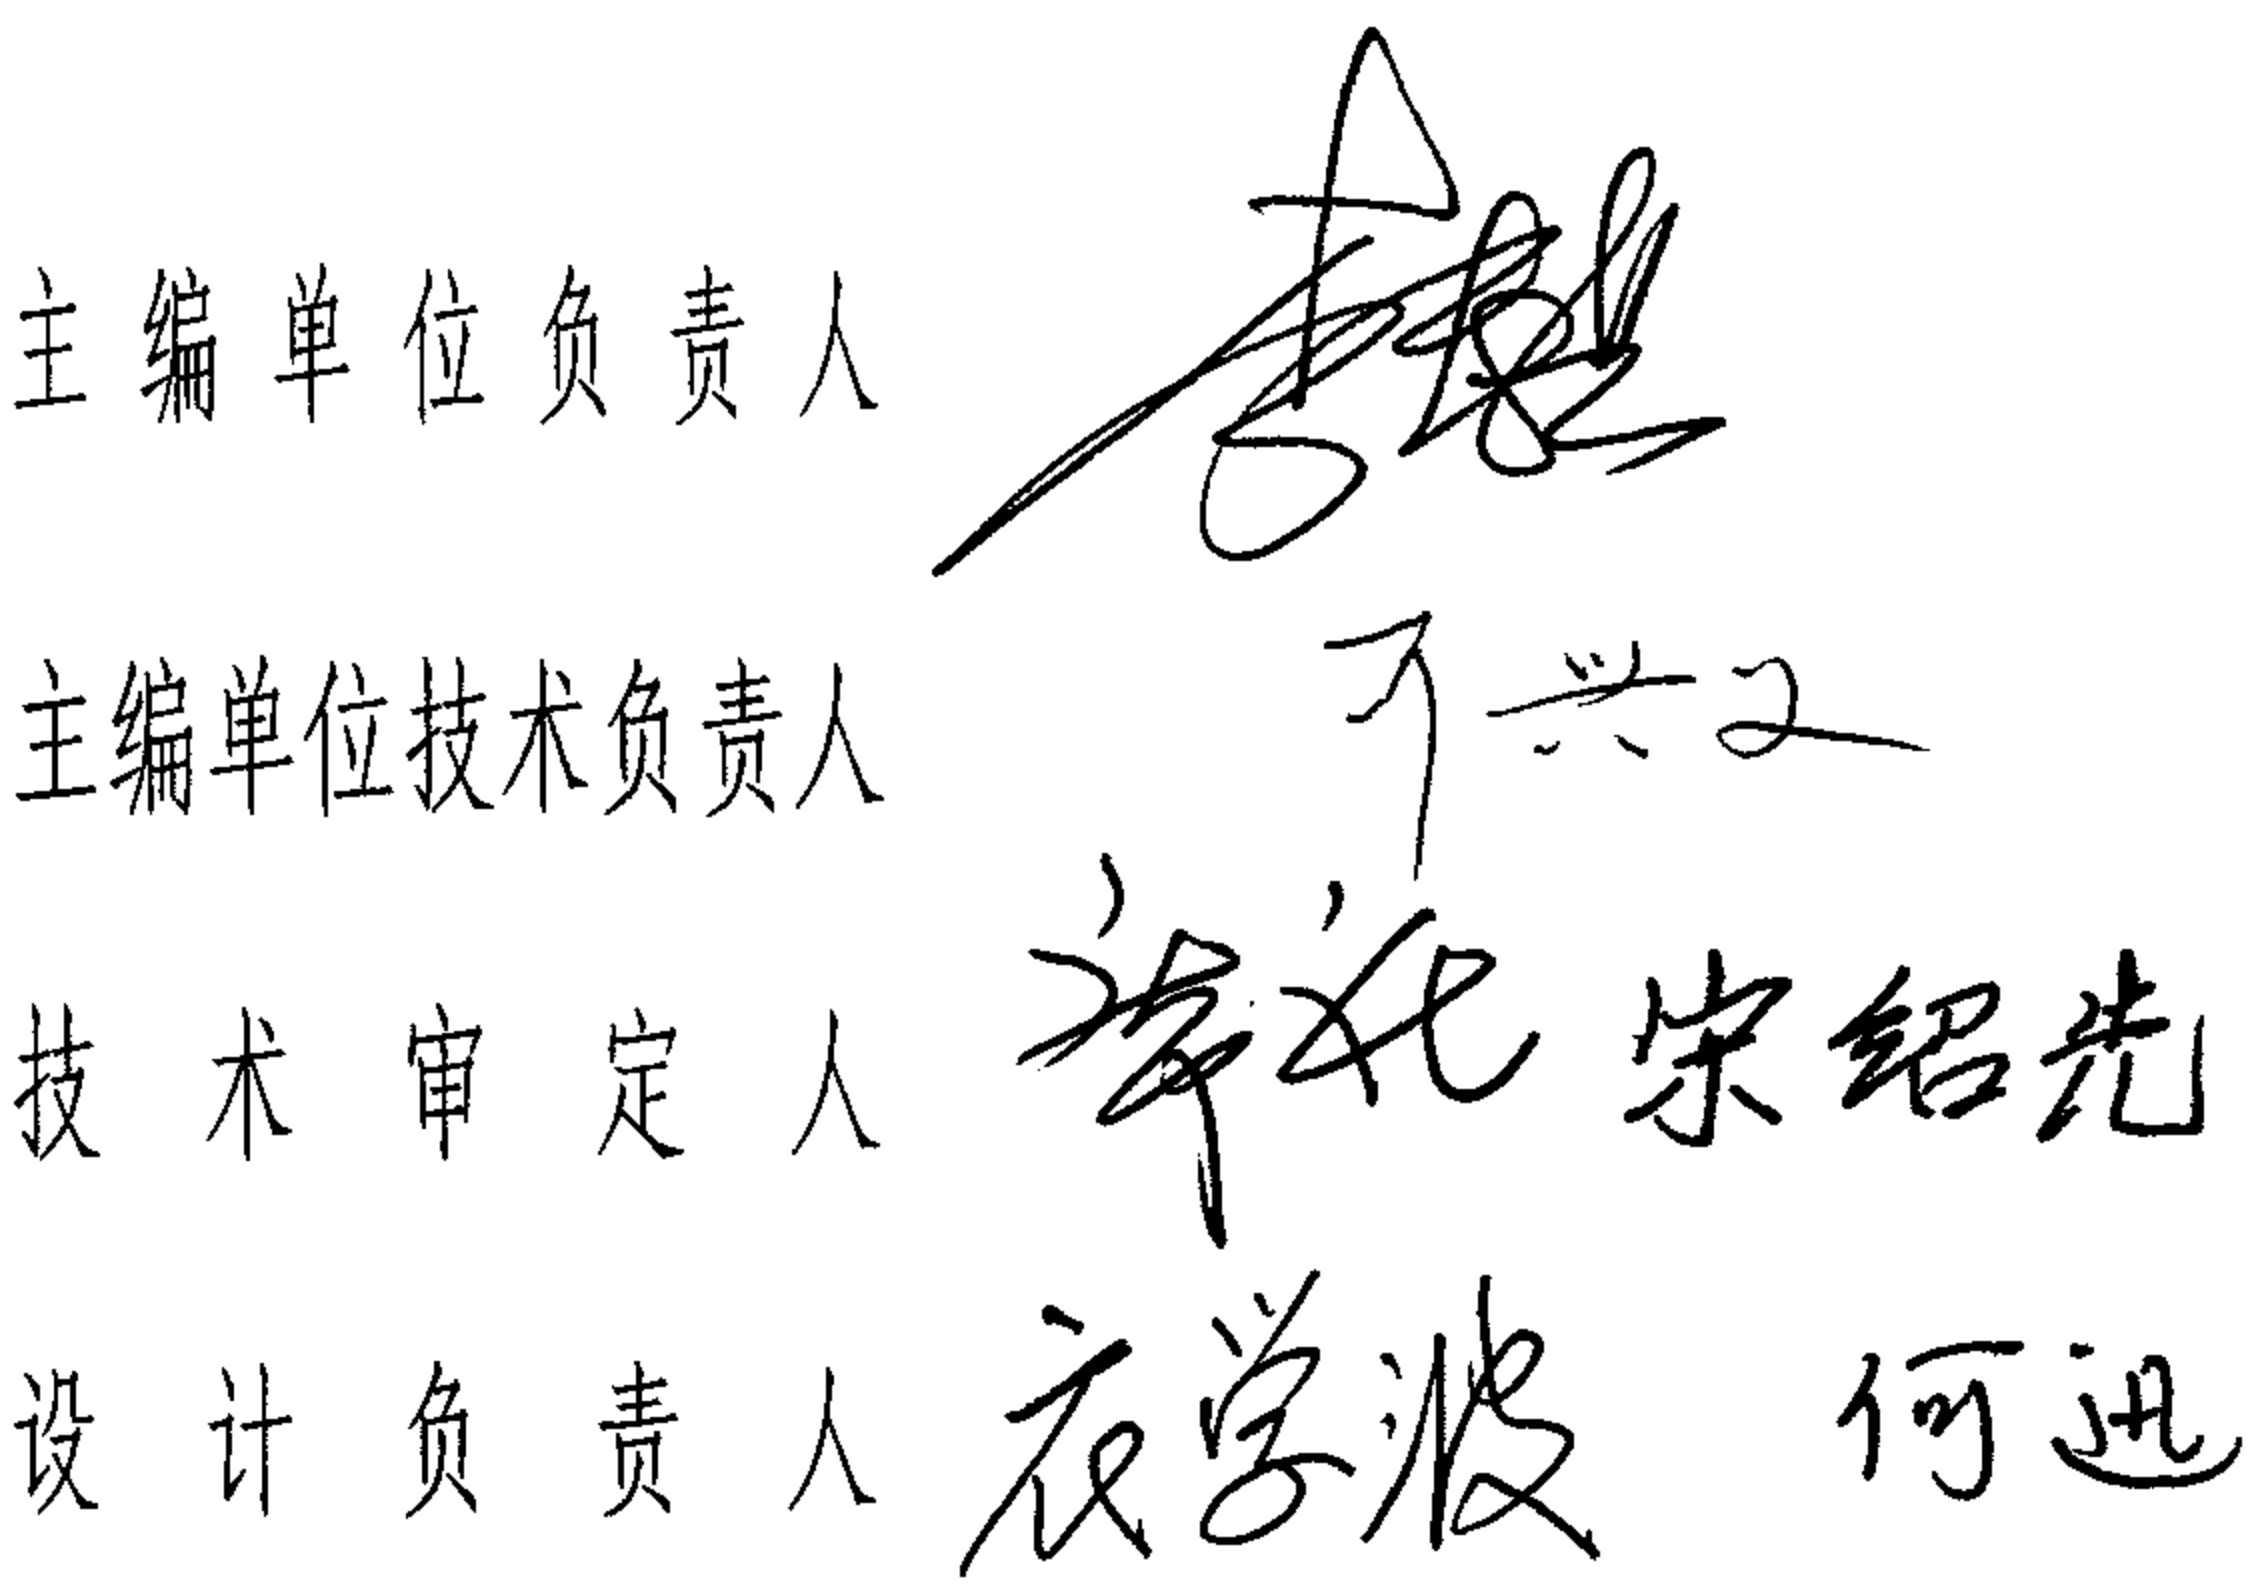 主编单位负责人
主编单位技术负责人
技术审定人 宋绍先
设计负责人 衣学波 何迅